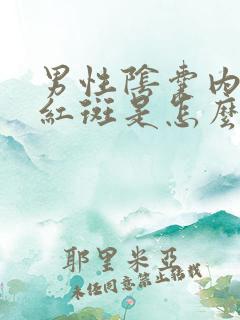 男性陰囊內
紅斑是怎麼
耶里米亞
未經同意禁止轉載